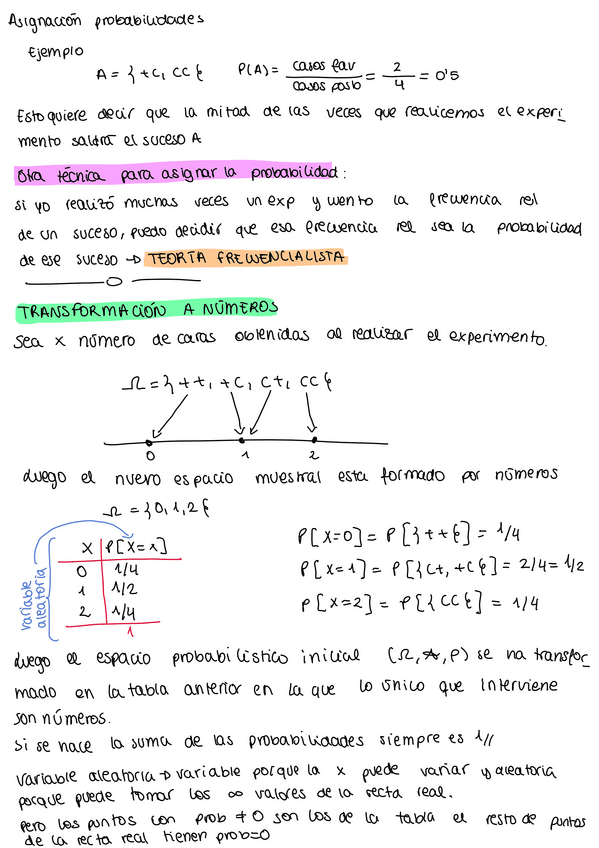 Asignación probabilidades
Ejemplo
A = { +c, cc }   P(A) = casos fav / casos posib = 2/4 = 0'5
Esto quiere decir que la mitad de las veces que realicemos el experi_
mento saldrá el suceso A
Otra técnica para asignar la probabilidad:
si yo realizó muchas veces un exp y cuento la frecuencia rel
de un suceso, puedo decidir que esa frecuencia rel sea la probabilidad
de ese suceso → TEORÍA FRECUENCIALISTA
TRANSFORMACIÓN A NÚMEROS
Sea x número de caras obtenidas al realizar el experimento.
Ω = { ++, +c, c+, cc }
0 1 2
Luego el nuevo espacio muestral esta formado por números
Ω = {0, 1, 2}
variable aleatoria
X P[X=x]
0 1/4
1 1/2
2 1/4
1
P[X=0] = P[{++}] = 1/4
P[X=1] = P[{c+, +c}] = 2/4 = 1/2
P[X=2] = P[{cc}] = 1/4
Luego el espacio probabilístico inicial (Ω, A, P) se ha transfor_
mado en la tabla anterior en la que lo único que interviene
son números.
Si se hace la suma de las probabilidades siempre es 1//
Variable aleatoria → variable porque la x puede variar y aleatoria
porque puede tomar los ∞ valores de la recta real.
Pero los puntos con prob ≠ 0 son los de la tabla el resto de puntos
de la recta real tienen prob=0